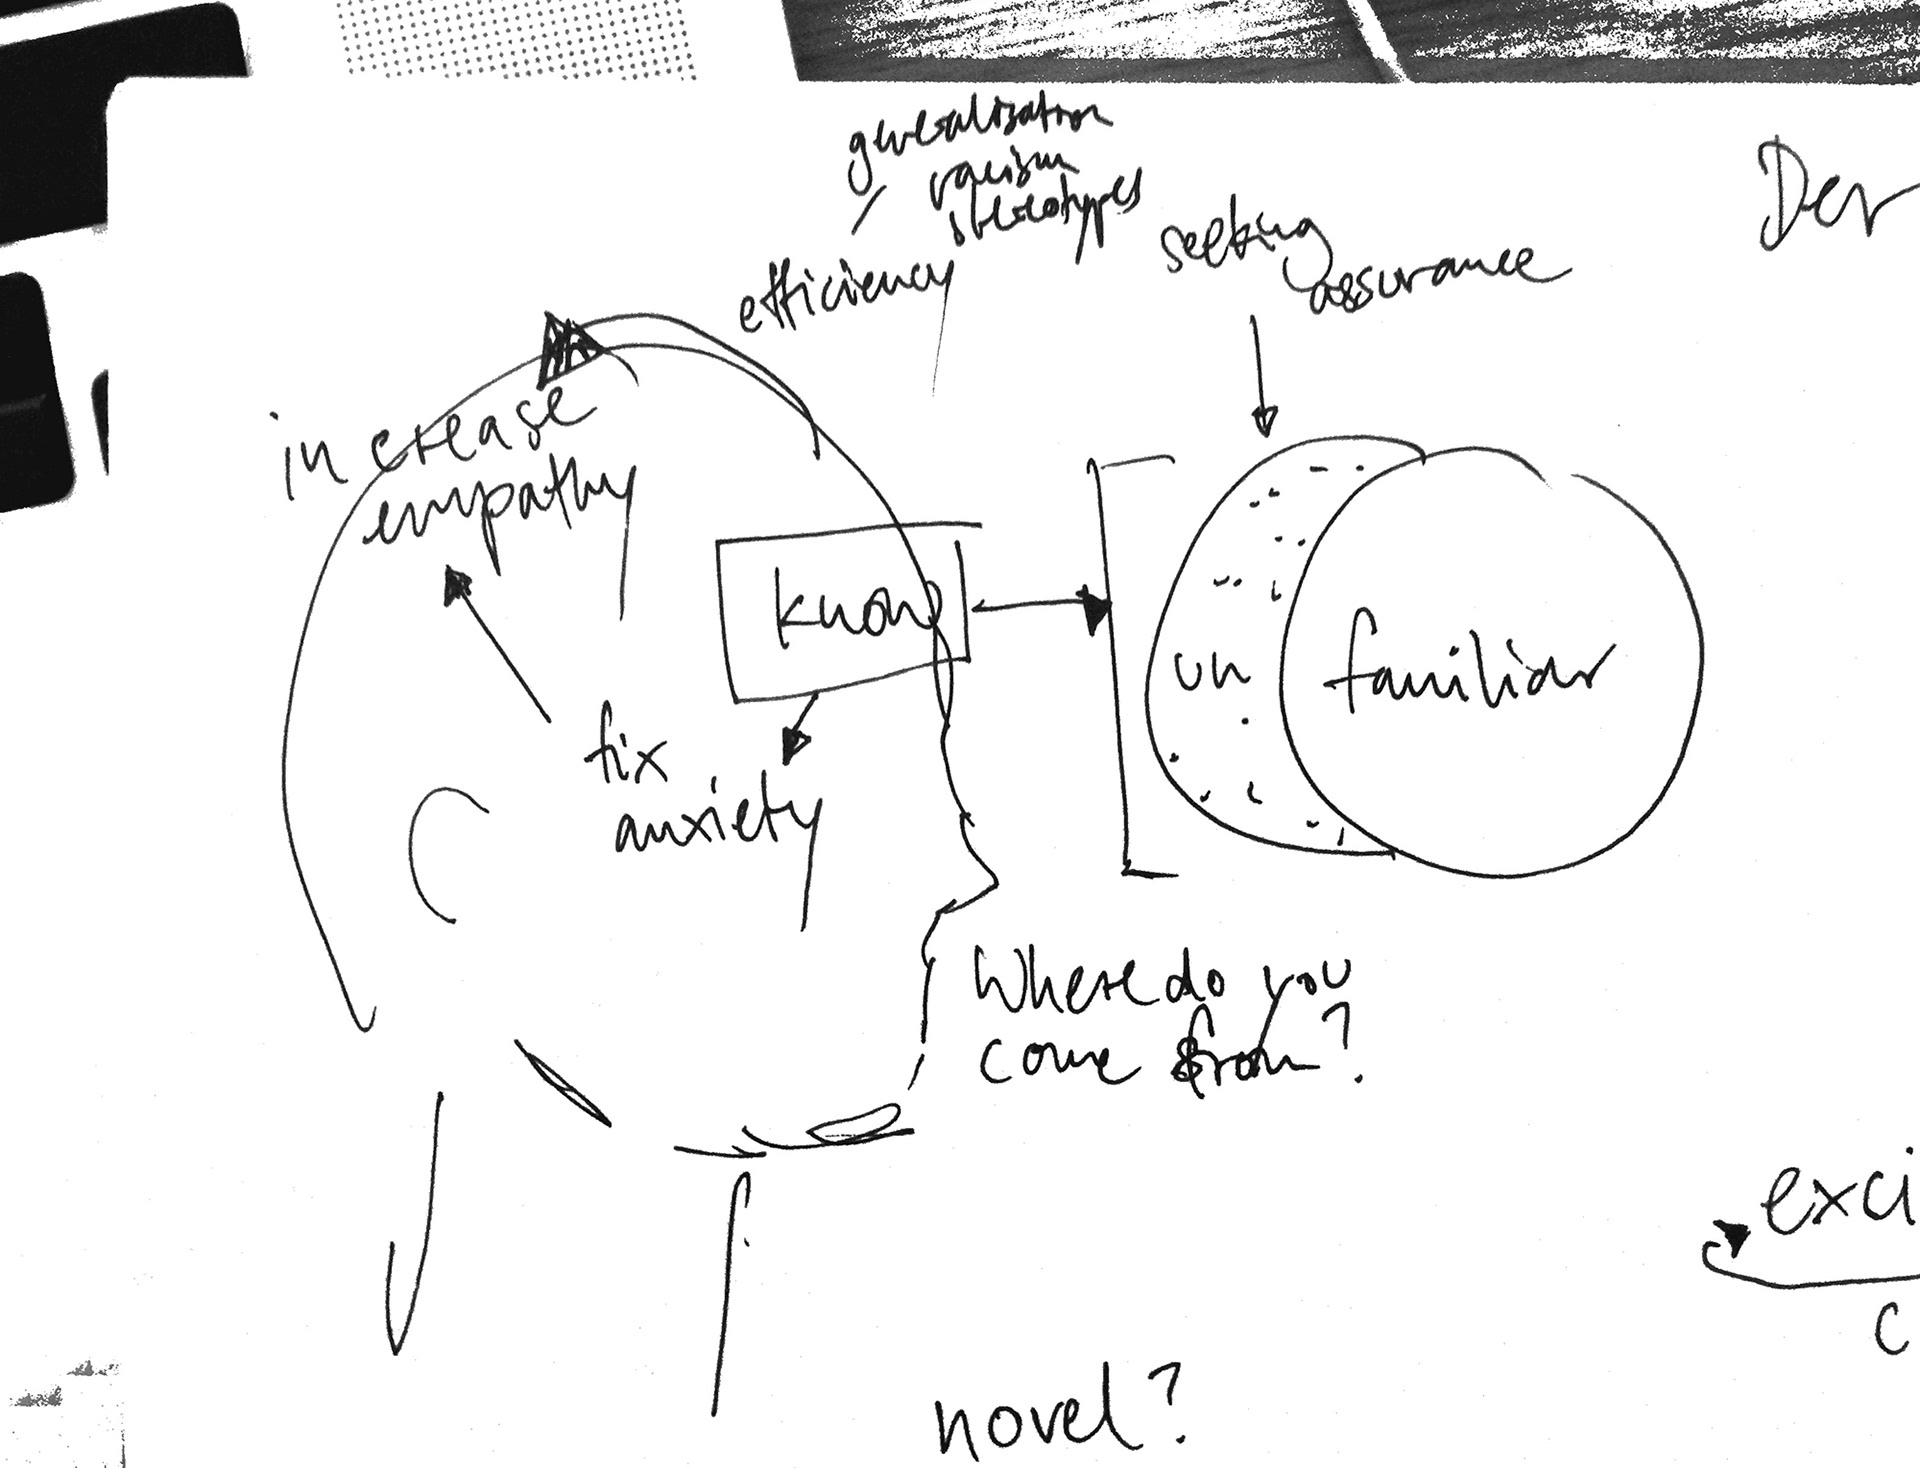 generalization
racism
stereotypes
efficiency
seeking
assurance
Der
increase
empathy
know
un familiar
fix
anxiety
Where do you
come from?
exci
c
novel?